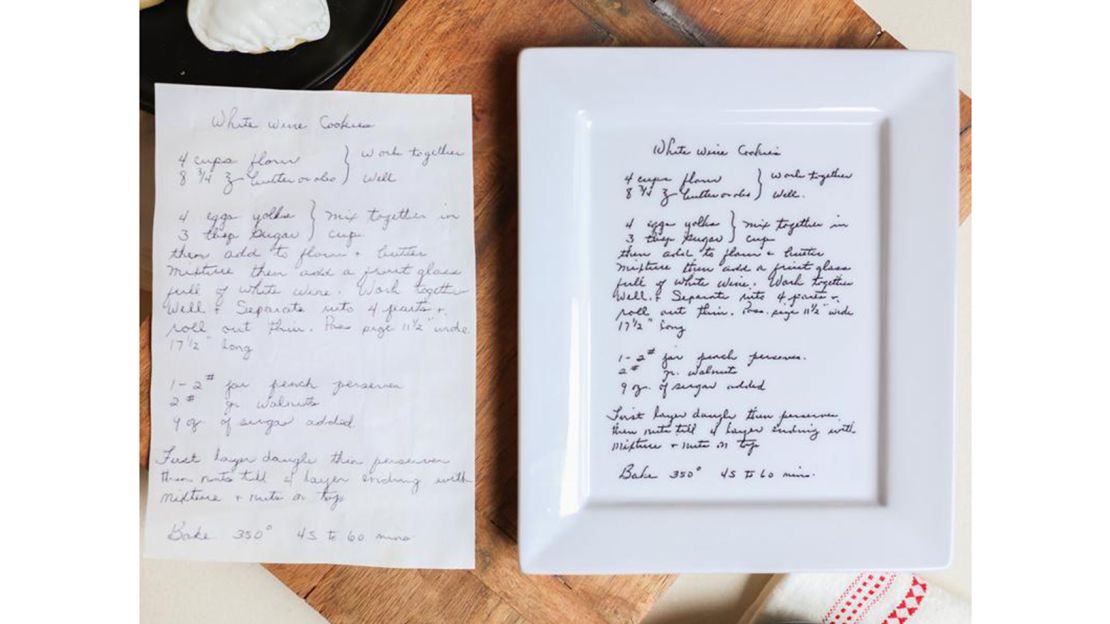 White Wine Cookies
4 cups flour } Work together
8 3/4 oz butter or oleo } Well
4 eggs yolks } mix together in
3 tbsp sugar } cup
then add to flour + butter
mixture then add a fruit glass
full of white wine. Work together
Well + Separate into 4 parts +
roll out thin. Pan size 11 1/2" wide
17 1/2" long
1 - 2# jar peach perserves
2# gr. walnuts
9 oz. of sugar added
First layer daugh then perserves
then nuts till 4 layer ending with
mixture + nuts on top
Bake 350° 45 to 60 mins.
White Wine Cookies
4 cups flour } Work together
8 3/4 oz butter or oleo } Well.
4 eggs yolks } mix together in
3 tbsp sugar } cup
then add to flour + butter
mixture then add a fruit glass
full of white wine. Work together
Well. + Separate into 4 parts +
roll out thin. size 11 1/2" wide
17 1/2" long
1 - 2# jar peach perserves.
2# gr. walnuts
9 oz. of sugar added
First layer daugh then perserves
then nuts till 4 layer ending with
mixture + nuts on top
Bake 350° 45 to 60 mins.